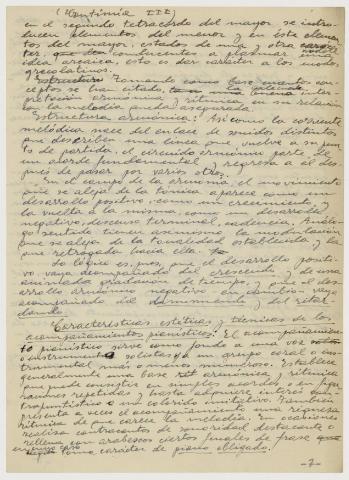 (Continúa III)
en el segundo tetracordo del mayor se intro-
ducen elementos del menor y en este elemen-
tos del mayor, estados de una y otra carácter
ter, conducentes a plasmar una
idea arcaica, esto es dar carácter a los modos
grecolatinos.
Estructura Tomando como base cuanto con-
ceptos se han citado, la inter-
pretación armónica y rítmica en su relación
con la melodía queda asegurada.
Estructura armónica: Así como la corriente
melódica nace del enlace de sonidos distintos
que describen una línea que vuelve a su pun-
to de partida, el circuito armónico parte de
un acorde fundamental y regresa a él des-
pués de pasar por varios otros.
En el campo de la armonía, el movimiento
que se aleja de la tónica aparece como un
desarrollo positivo, como un crecimiento, y
la vuelta a la misma, como un desarrollo
negativo, descanso terminal, cadencia. Análo-
go sentido tienen asimismo la modulación
que se aleja de la tonalidad establecida, y la
que retrograda hacia ella.
Lo lógico es, pues, que el desarrollo positi-
vo vaya acompañado del crescendo y de una
animada gradación de tiempo, y que el des-
arrollo armónico negativo en cambio vaya
acompañado del diminuendo y del ritar-
dando.
Características estéticas y técnicas de los
acompañamientos pianísticos: El acompañamien-
to pianístico sirve como fondo a una voz
o instrumento solistas, a un grupo coral o ins-
trumental más o menos numeroso. Establece
generalmente una base armónica y rítmica
que puede consistir en simples acordes o en figu-
raciones repetidas y hasta adquiere interés con-
trapuntístico o un colorido imitativo. También
presenta a veces el acompañamiento una riqueza
rítmica de que carece la melodía. En ocasiones
realiza contracantos de sonoridad destacante o
rellena con arabescos ciertos finales de frase
en cuyo caso toma carácter de piano obligado.
-7-